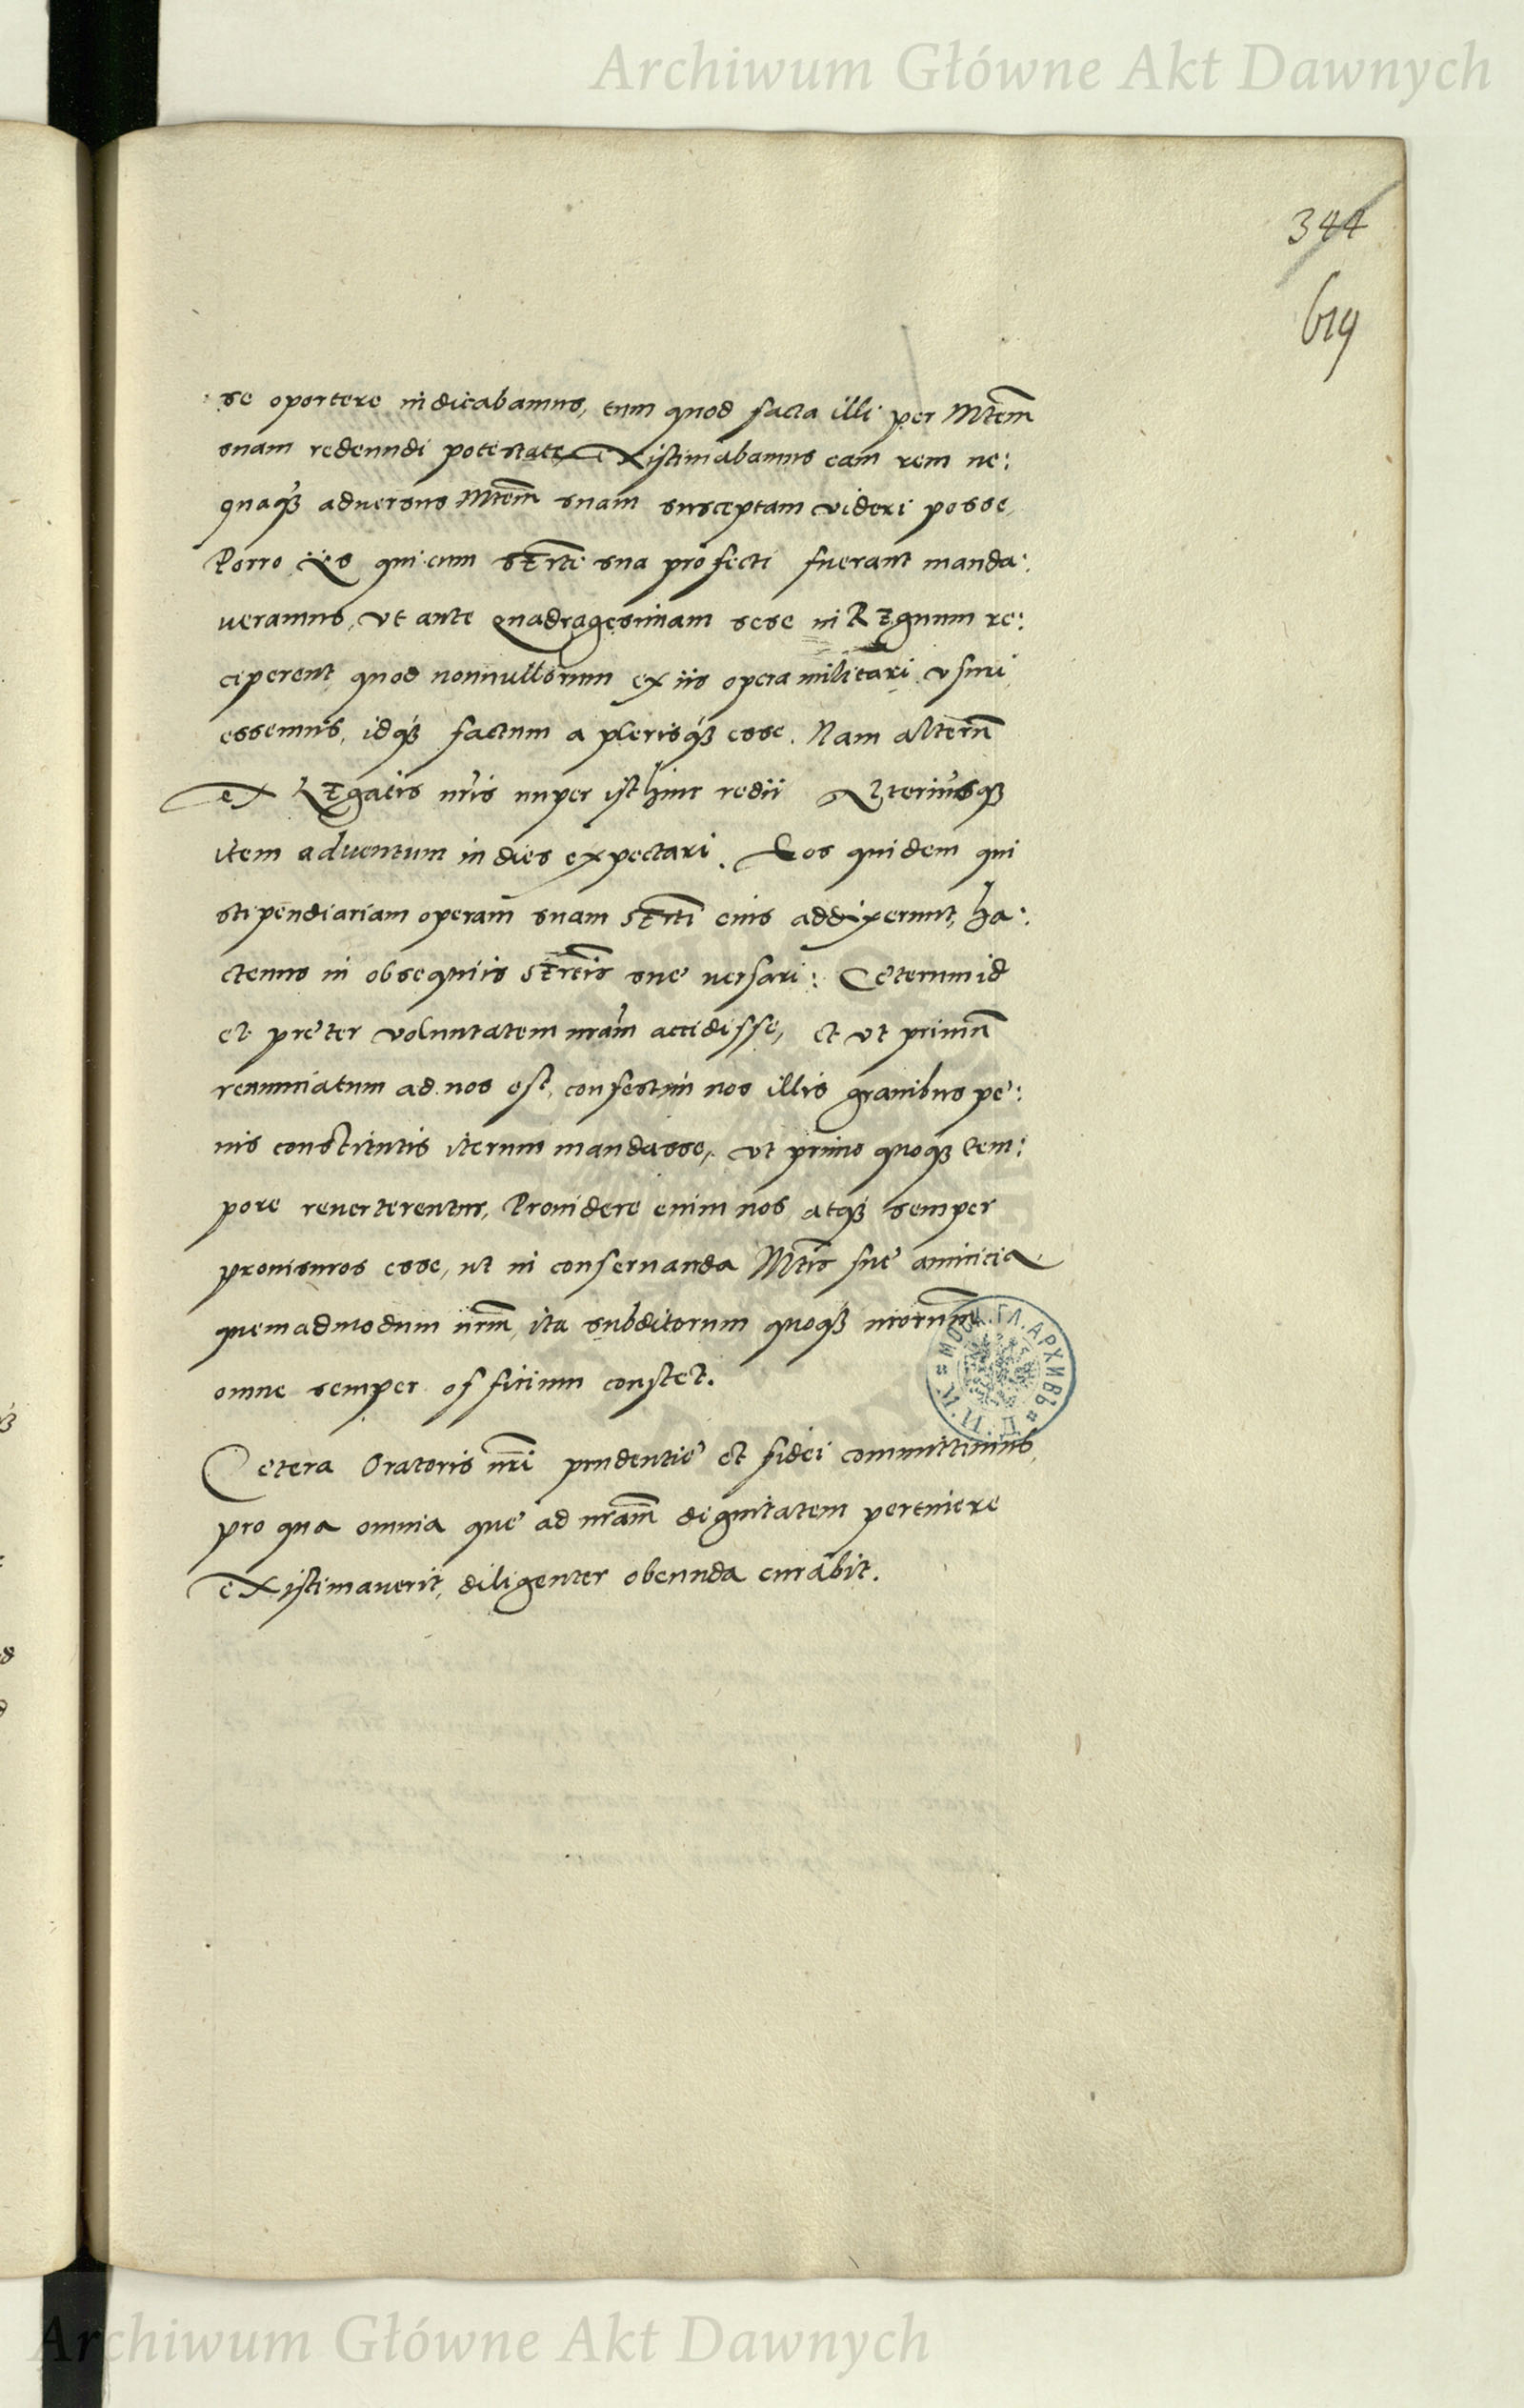 Archiwum Główne Akt Dawnych
344
619
se oportere iudicabamus, tum quod facta illi per Mtem̃
suam redeundi potestate existimabamus eam rem ne:
quaq́ꝫ aduersus Mtem̃ suam susceptam videri posse,
Porro iis qui cum SErti sua profecti fuerant manda:
ueramus, vt ante quadragesimam sese in REgnum re:
ciperent, quod nonnullorum ex iis opera militari vsuri
essemus, idq́ꝫ factum a plerisq́ꝫ esse. Nam alterũ
ex LEgatis nr̃is nuper isthinc redii Alteriusqꝫ
item aduentum in dies expectari. Eos quidem qui
stipendiariam operam suam SErti eius addixerunt, ha:
ctenus in obsequiis SErtis sue versari: Ceterum id
et preter voluntatem nr̃am accidisse, et vt primũ
renunciatum ad nos est, confestim nos illis grauibus pe:
nis constitutis iterum mandasse, vt primo quoqꝫ tem:
pore reuerterentur, Prouidere enim nos atqꝫ semper
prouisuros esse, ut in conseruanda Mtis sue amicicia
quemadmodum nr̃m, ita subditorum quoqꝫ nrorum̃
omne semper officium constet.
Cetera Oratoris nr̃i prudentie et fidei committimus,
pro qua omnia que ad nr̃am dignitatem pertinere
existimauerit, diligenter obeunda curabit.
МОСК. ГЛ. АРХИВЪ
М.И.Д.
Archiwum Główne Akt Dawnych